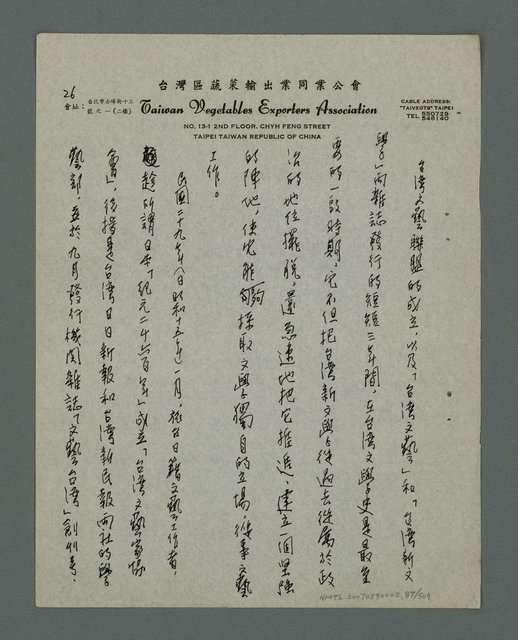 台灣區蔬菜輸出業同業公會
26
會址：台北市赤峰街十三號之一(二樓)
Taiwan Vegetables Exporters Association
NO. 13-1 2ND FLOOR. CHYH FENG STREET
TAIPEI TAIWAN REPUBLIC OF CHINA
CABLE ADDRESS:
"TAIVEGTS" TAIPEI
TEL 550728
548140
台湾文藝聯盟的成立，以及「台湾文藝」和「台湾新文
學」両雜誌發行的短短三年間，在台湾文學史是最重
要的一段時期，它不但把台湾新文學從過去從属於政
治的地位擺脱，還急速地把它推進，建立一個堅強
的陣地，使它能夠採取文學獨自的立場，從事文藝
工作。
民國二十九年(日昭和十五年)一月，旅台日籍文藝工作者，
趁所謂日本「紀元二千六百年」成立「台湾文藝家協
會」，後援是台湾日日新報和台湾新民報両社的學
藝部，並於九月發行機関雜誌「文藝台湾」創刊号，
NMTL 20070590002, 87/509